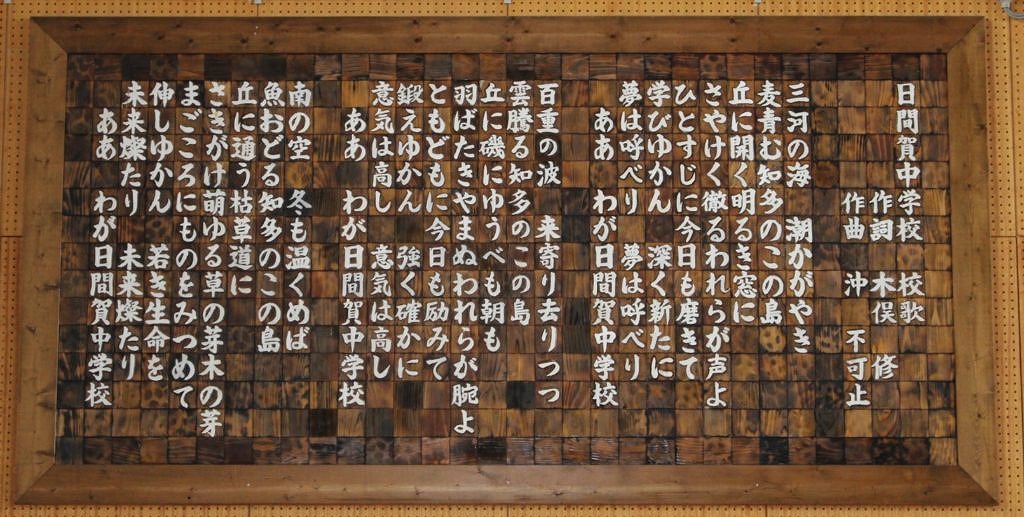 日間賀中学校　校歌
作詞　木俣　修
作曲　沖　不可止
三河の海　潮かがやき
麦青む知多のこの島
丘に開く明るき窓に
さやけく徹るわれらが声よ
ひとすじに今日も磨きて
学びゆかん　深く新たに
夢は呼べり　夢は呼べり
ああ　わが日間賀中学校
百重の波　来寄り去りつつ
雲騰る知多のこの島
丘に磯にゆうべも朝も
羽ばたきやまぬわれらが腕よ
ともどもに今日も励みて
鍛えゆかん　強く確かに
意気は高し　意気は高し
ああ　わが日間賀中学校
南の空　冬も温くめば
魚おどる知多のこの島
丘に通う枯草道に
さきがけ萌ゆる草の芽木の芽
まごころにものをみつめて
伸しゆかん　若き生命を
未来燦たり　未来燦たり
ああ　わが日間賀中学校